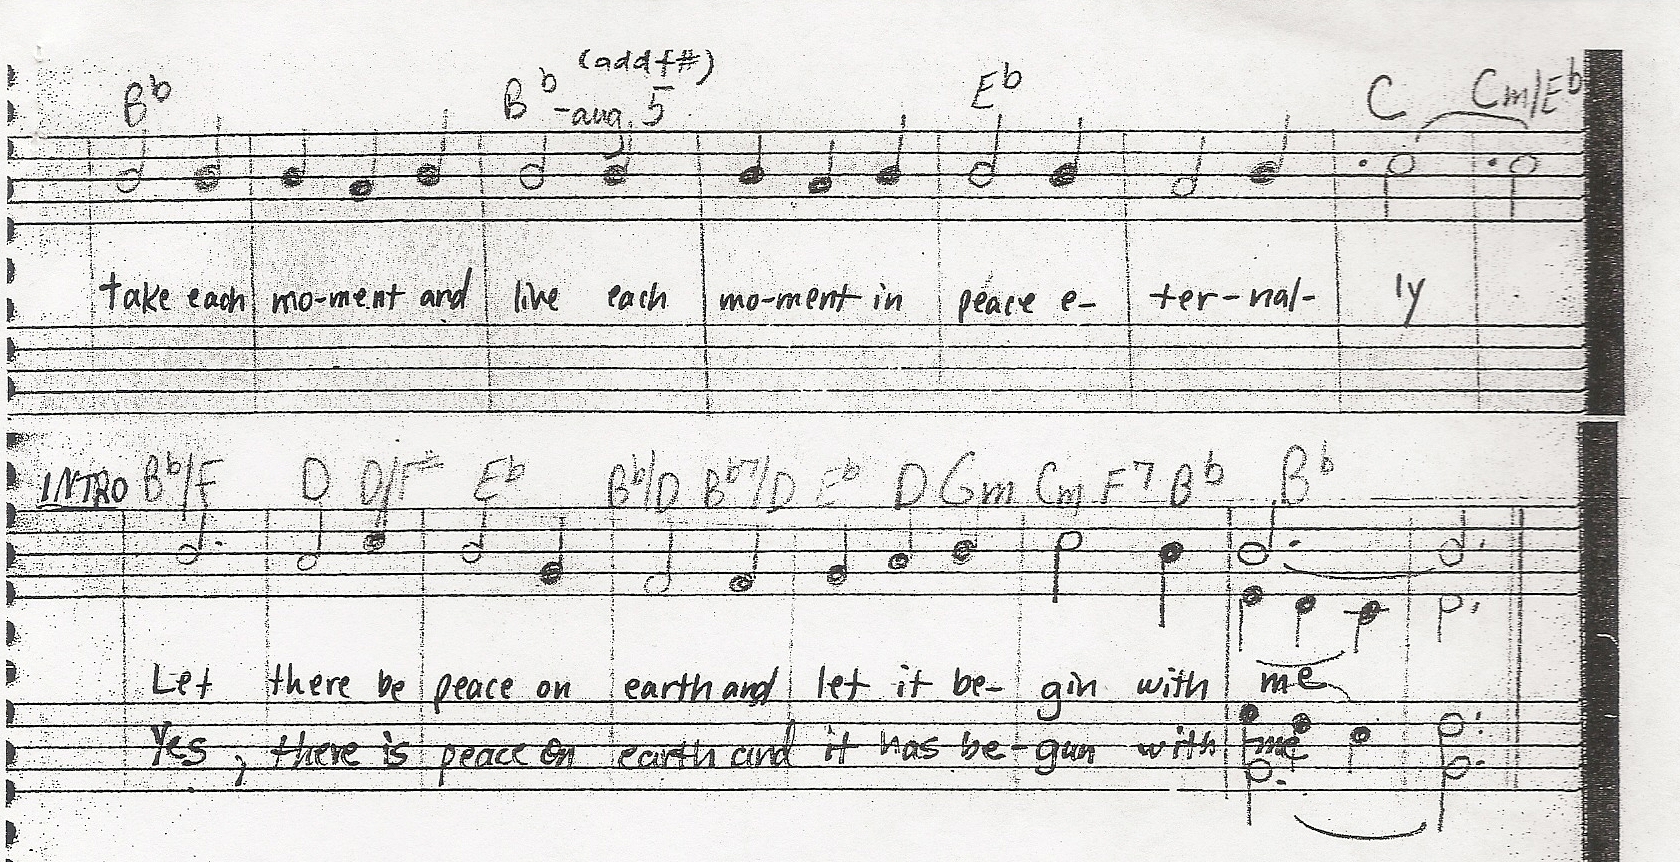 (add f#)
B♭ B♭-aug. 5 E♭ C Cm/E♭
take each mo-ment and live each mo-ment in peace e- ter-nal- ly
INTRO B♭/F D D/F# E♭ B♭/D B♭7/D E♭ D Gm Cm F7 B♭ B♭
Let there be peace on earth and let it be- gin with me
Yes, there is peace on earth and it has be-gun with me